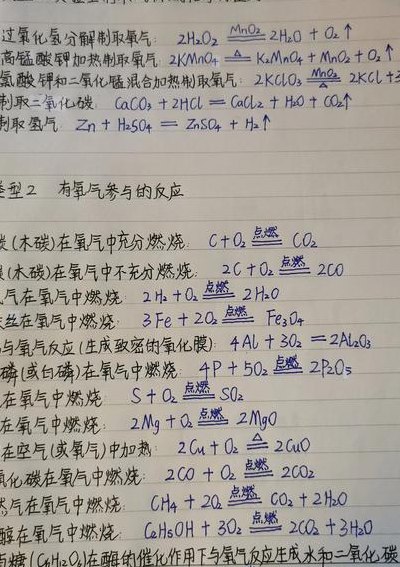 过氧化氢分解制取氧气: 2H₂O₂ MnO₂ 2H₂O + O₂↑
高锰酸钾加热制取氧气: 2KMnO₄ △ K₂MnO₄ + MnO₂ + O₂↑
氯酸钾和二氧化锰混合加热制取氧气: 2KClO₃ MnO₂ △ 2KCl +3
制取二氧化碳: CaCO₃ + 2HCl = CaCl₂ + H₂O + CO₂↑
制取氢气 Zn + H₂SO₄ = ZnSO₄ + H₂↑
类型2 有氧气参与的反应
炭(木碳)在氧气中充分燃烧: C + O₂ 点燃 CO₂
(木碳)在氧气中不充分燃烧: 2C + O₂ 点燃 2CO
气在氧气中燃烧: 2H₂ + O₂ 点燃 2H₂O
丝在氧气中燃烧: 3Fe + 2O₂ 点燃 Fe₃O₄
与氧气反应(生成致密的氧化膜): 4Al + 3O₂ = 2Al₂O₃
磷(或白磷)在氧气中燃烧: 4P + 5O₂ 点燃 2P₂O₅
在氧气中燃烧: S + O₂ 点燃 SO₂
在氧气中燃烧: 2Mg + O₂ 点燃 2MgO
在空气(或氧气)中加热: 2Cu + O₂ △ 2CuO
氧化碳在氧气中燃烧: 2CO + O₂ 点燃 2CO₂
然气在氧气中燃烧: CH₄ + 2O₂ 点燃 CO₂ + 2H₂O
醇在氧气中燃烧: C₂H₅OH + 3O₂ 点燃 2CO₂ + 3H₂O
萄糖(C₆H₁₂O₆)在酶的催化作用下与氧气反应生成水和二氧化碳